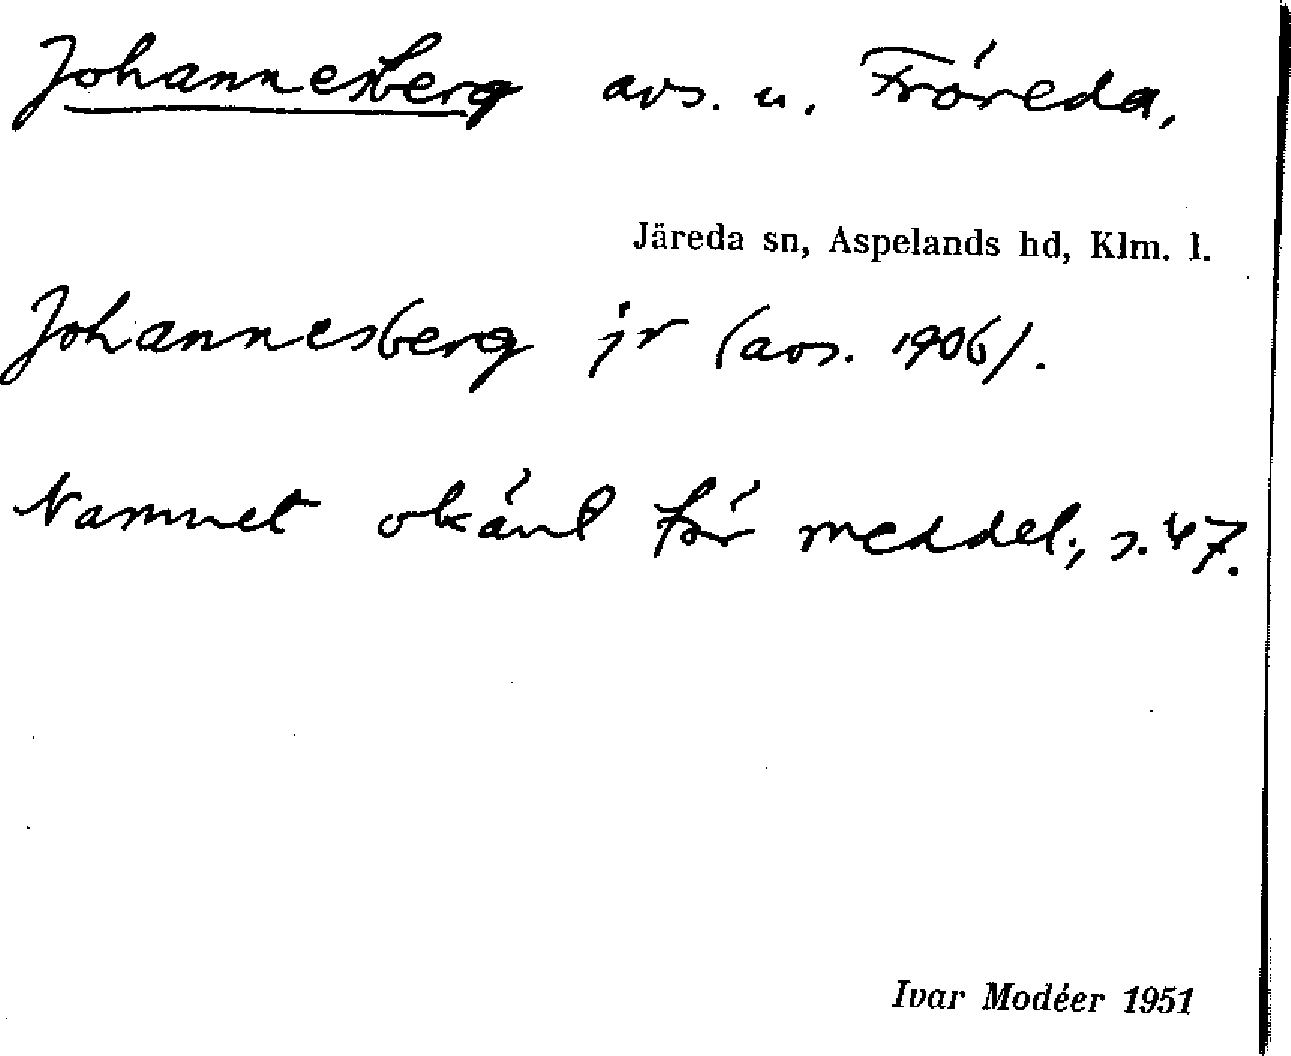 Johannesberg avs. u. Fröreda,
Järeda sn, Aspelands hd, Klm. l.
Johannesberg jr (avs. 1906).
Namnet okänt för meddel., s. 47.
Ivar Modéer 1951